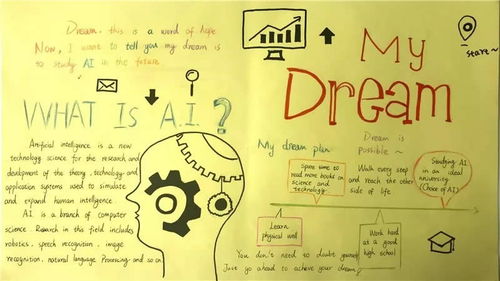 Dream, this is a word of hope
Now, I want to tell you my dream is
to study AI in the future
WHAT Is A.I. ?
Artificial intelligence is a new
technology science for the research and
development of the theory, technology and
application systems used to simulate
and expand human intelligence.
A.I. is a branch of computer
science. Research in this field includes
robotics, speech recognition, image
recognition, natural language Processing and so on.
My
Dream
start~
My dream plan
Dream is
possible ~
Walk every step
and reach the other
side of life
Spare time to
read more books on
science and
technology
Studying AI
in an ideal
university
(Choice of AI)
Learn
physical well
Work hard
at a good
high school
You don't need to doubt yourself
Just go ahead to achieve your dream